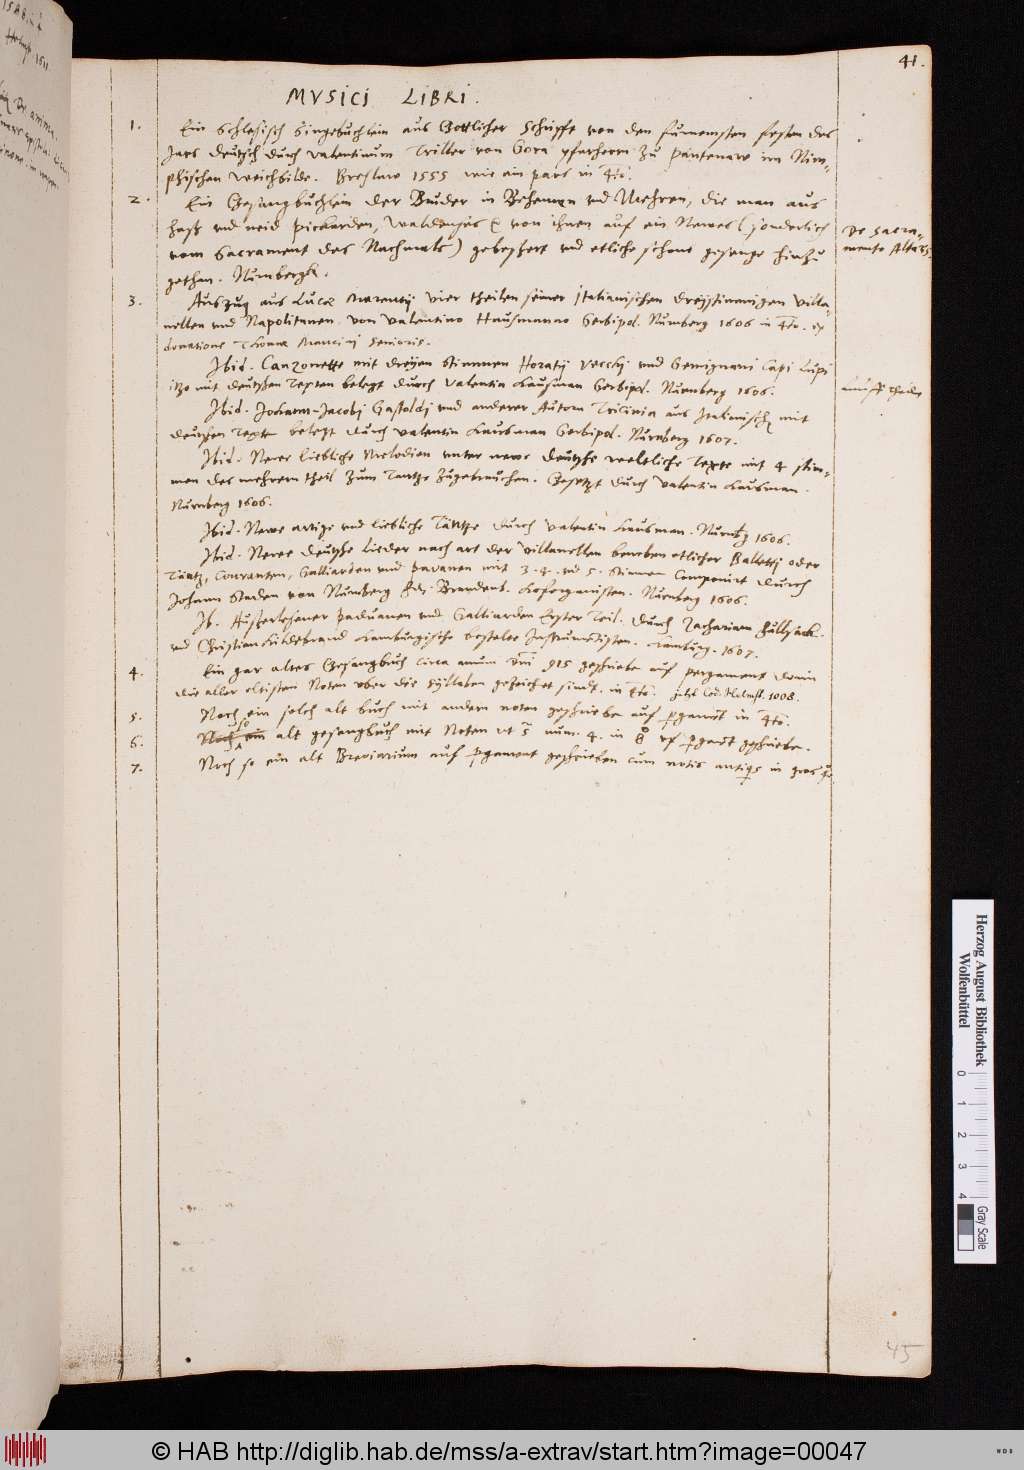 41.
MVSICI LIBRI.
1. Ein Schlesisch Singebuchlein aus Gottlicher Schrifft von den furnemsten festen des
Jars deutsch durch Valentinum Triller von Gora pfarherrn zu Pantenaw im Nim-
phischen Weichbilde. Breslaw 1555 in 4to.
2. Ein Gesangbuchlein der Bruder in Behemen vnd Mehren, die man aus
haß vnd neid Pickarden, Waldenses &c von ihnen auf ein Newes (sonderlich
vom Sacrament des Nachmals) gebessert vnd etliche schone gesenge hinzu
gethan. Nurnbergk.
De Sacra-
mento Altaris.
3. Auszug aus Lucæ Marentij vier theilen seiner Italianischen dreystimmigen Villa-
nellen vnd Napolitanen von Valentino Hausmanno Gerbipol. Nurmberg 1606 in 4to. ex
donatione Thomæ Mancinj Senioris.
Ibid. Canzonette mit dreyen Stimmen Horatij Vecchij vnd Gemignani Capi Lupi
itzo mit deutschen Texten belegt durch Valentin Hausman Gerbipol. Nürnberg 1606.
Ibid. Johann-Jacobj Gastoldj vnd anderer Autorn Tricinia aus Italianisch mit
deutschen Texte belegt durch Valentin Hausman Gerbipol. Nürnberg 1607.
Ibid. Newe liebliche Melodien unter newe deutzsche weltliche Texte mit 4 stim-
men des mehrern theil zum Tantze zugebrauchen. Gesetzt durch Valentin Hausman.
Nürnberg 1606.
Ibid. Newe artige vnd liebliche Täntze durch Valentin Hausman. Nürnbg 1606.
Ibid. Newe deutsche Lieder nach art der Villanellen beneben etlicher Balletti oder
Täntz, Couranten, Galliarden vnd Pavanen mit 3. 4. vnd 5. Stimmen Componirt durch
Johann Staden von Nürnberg Brandenb. Hoforganisten. Nürnberg 1606.
Ib. Außerlesener Paduanen vnd Galliarden Erster Teil. durch Zachariam Füllsack.
vnd Christian Hildebrand Hamburgische bestelte Instrumentisten. Hamburg. 1607.
4. Ein gar altes Gesangbuch circa annum Dni 915 geschriebe auf pergament darin
die aller eltisten Noten vber die Syllaben gezeichet sindt. in 8to. jetzt Cod. Helmst. 1008.
5. Noch ein solch alt buch mit andern noten geschriebe auf pgamēt in 4to.
6. Noch so ein alt gesangbuch mit Noten vt s̄ num. 4. in 8 vf pgamēt geschriebe.
7. Noch so ein alt Breviarium auff pgament geschrieben cum notis antiqs in gros 4to.
45
Herzog August Bibliothek
Wolfenbüttel
0 1 2 3 4
Gray Scale
© HAB http://diglib.hab.de/mss/a-extrav/start.htm?image=00047